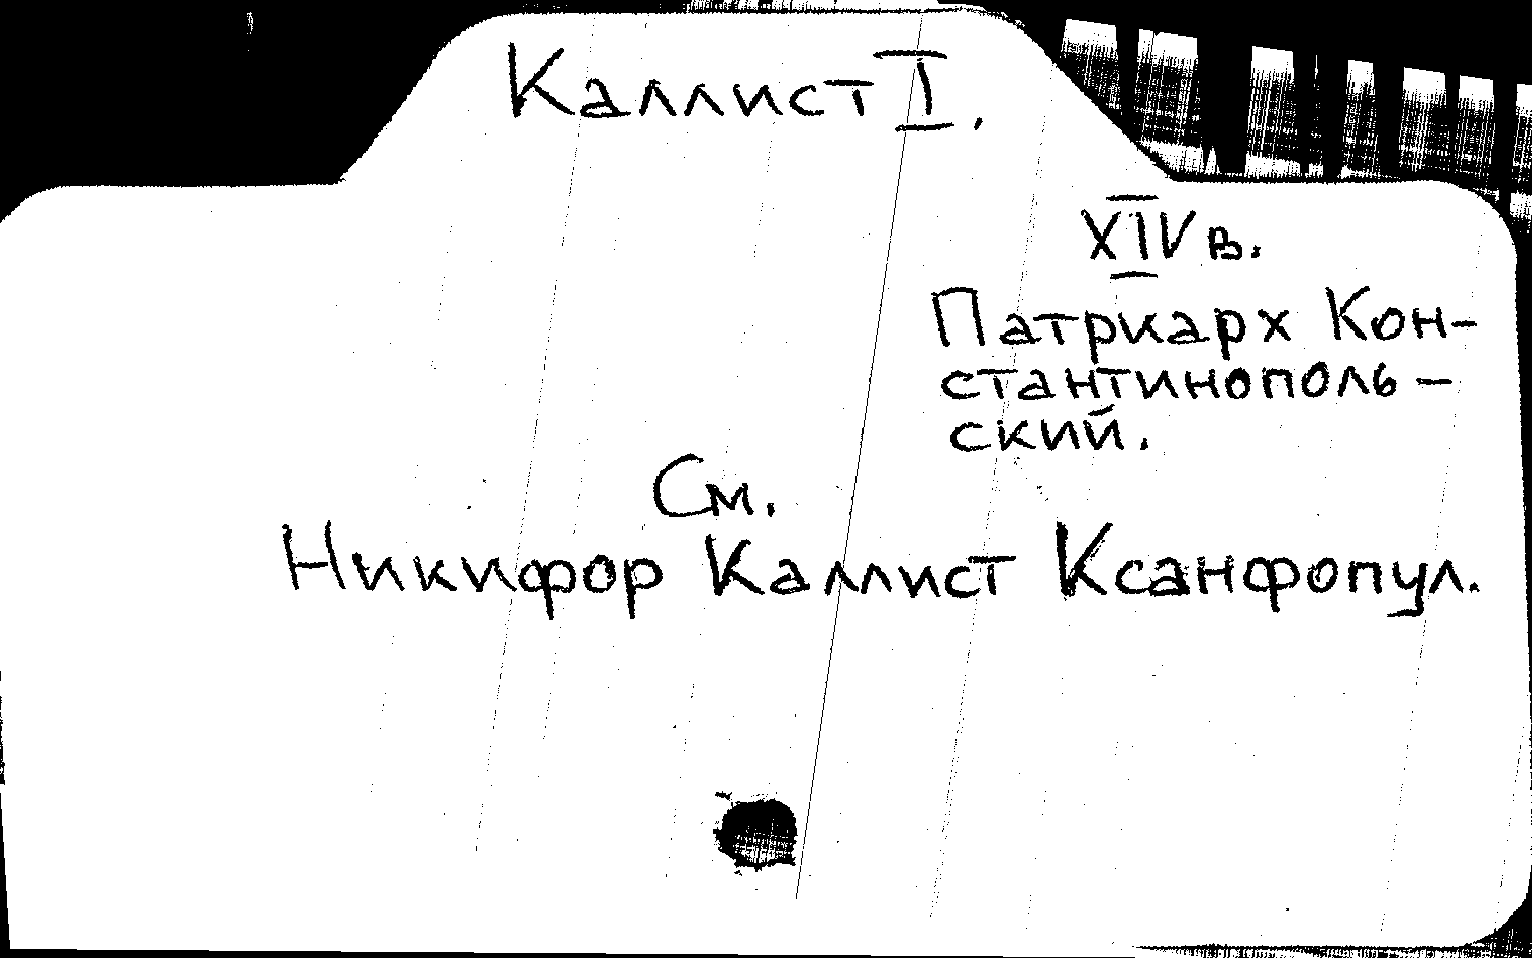 Каллист I.
XIV в.
Патриарх Кон-
стантинополь-
ский.
См.
Никифор Каллист Ксанфопул.